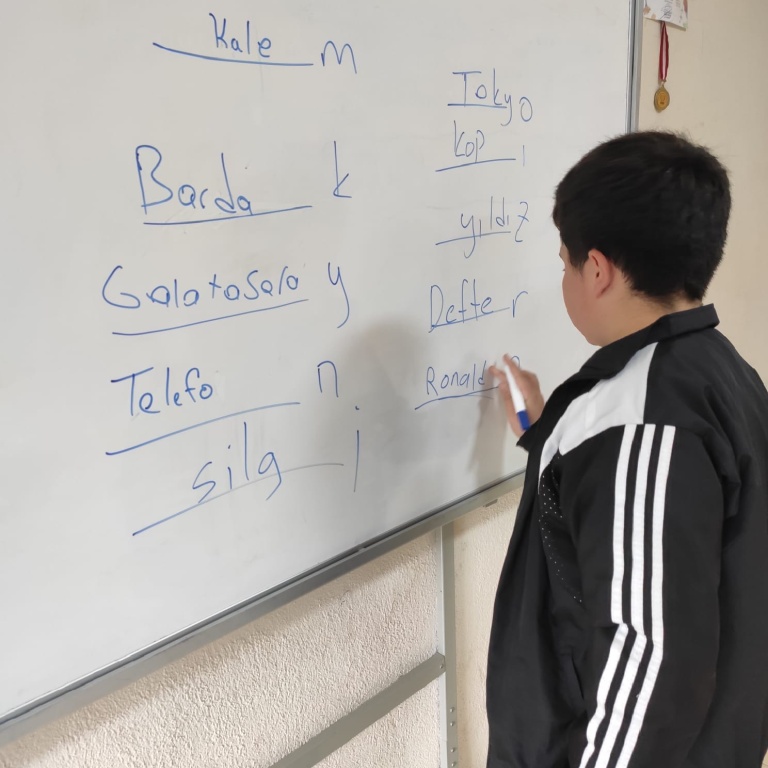 Kale m
Barda k
Galatasara y
Telefo n
silg i
Tokyo
kop i
yıldız
Defte r
Ronald